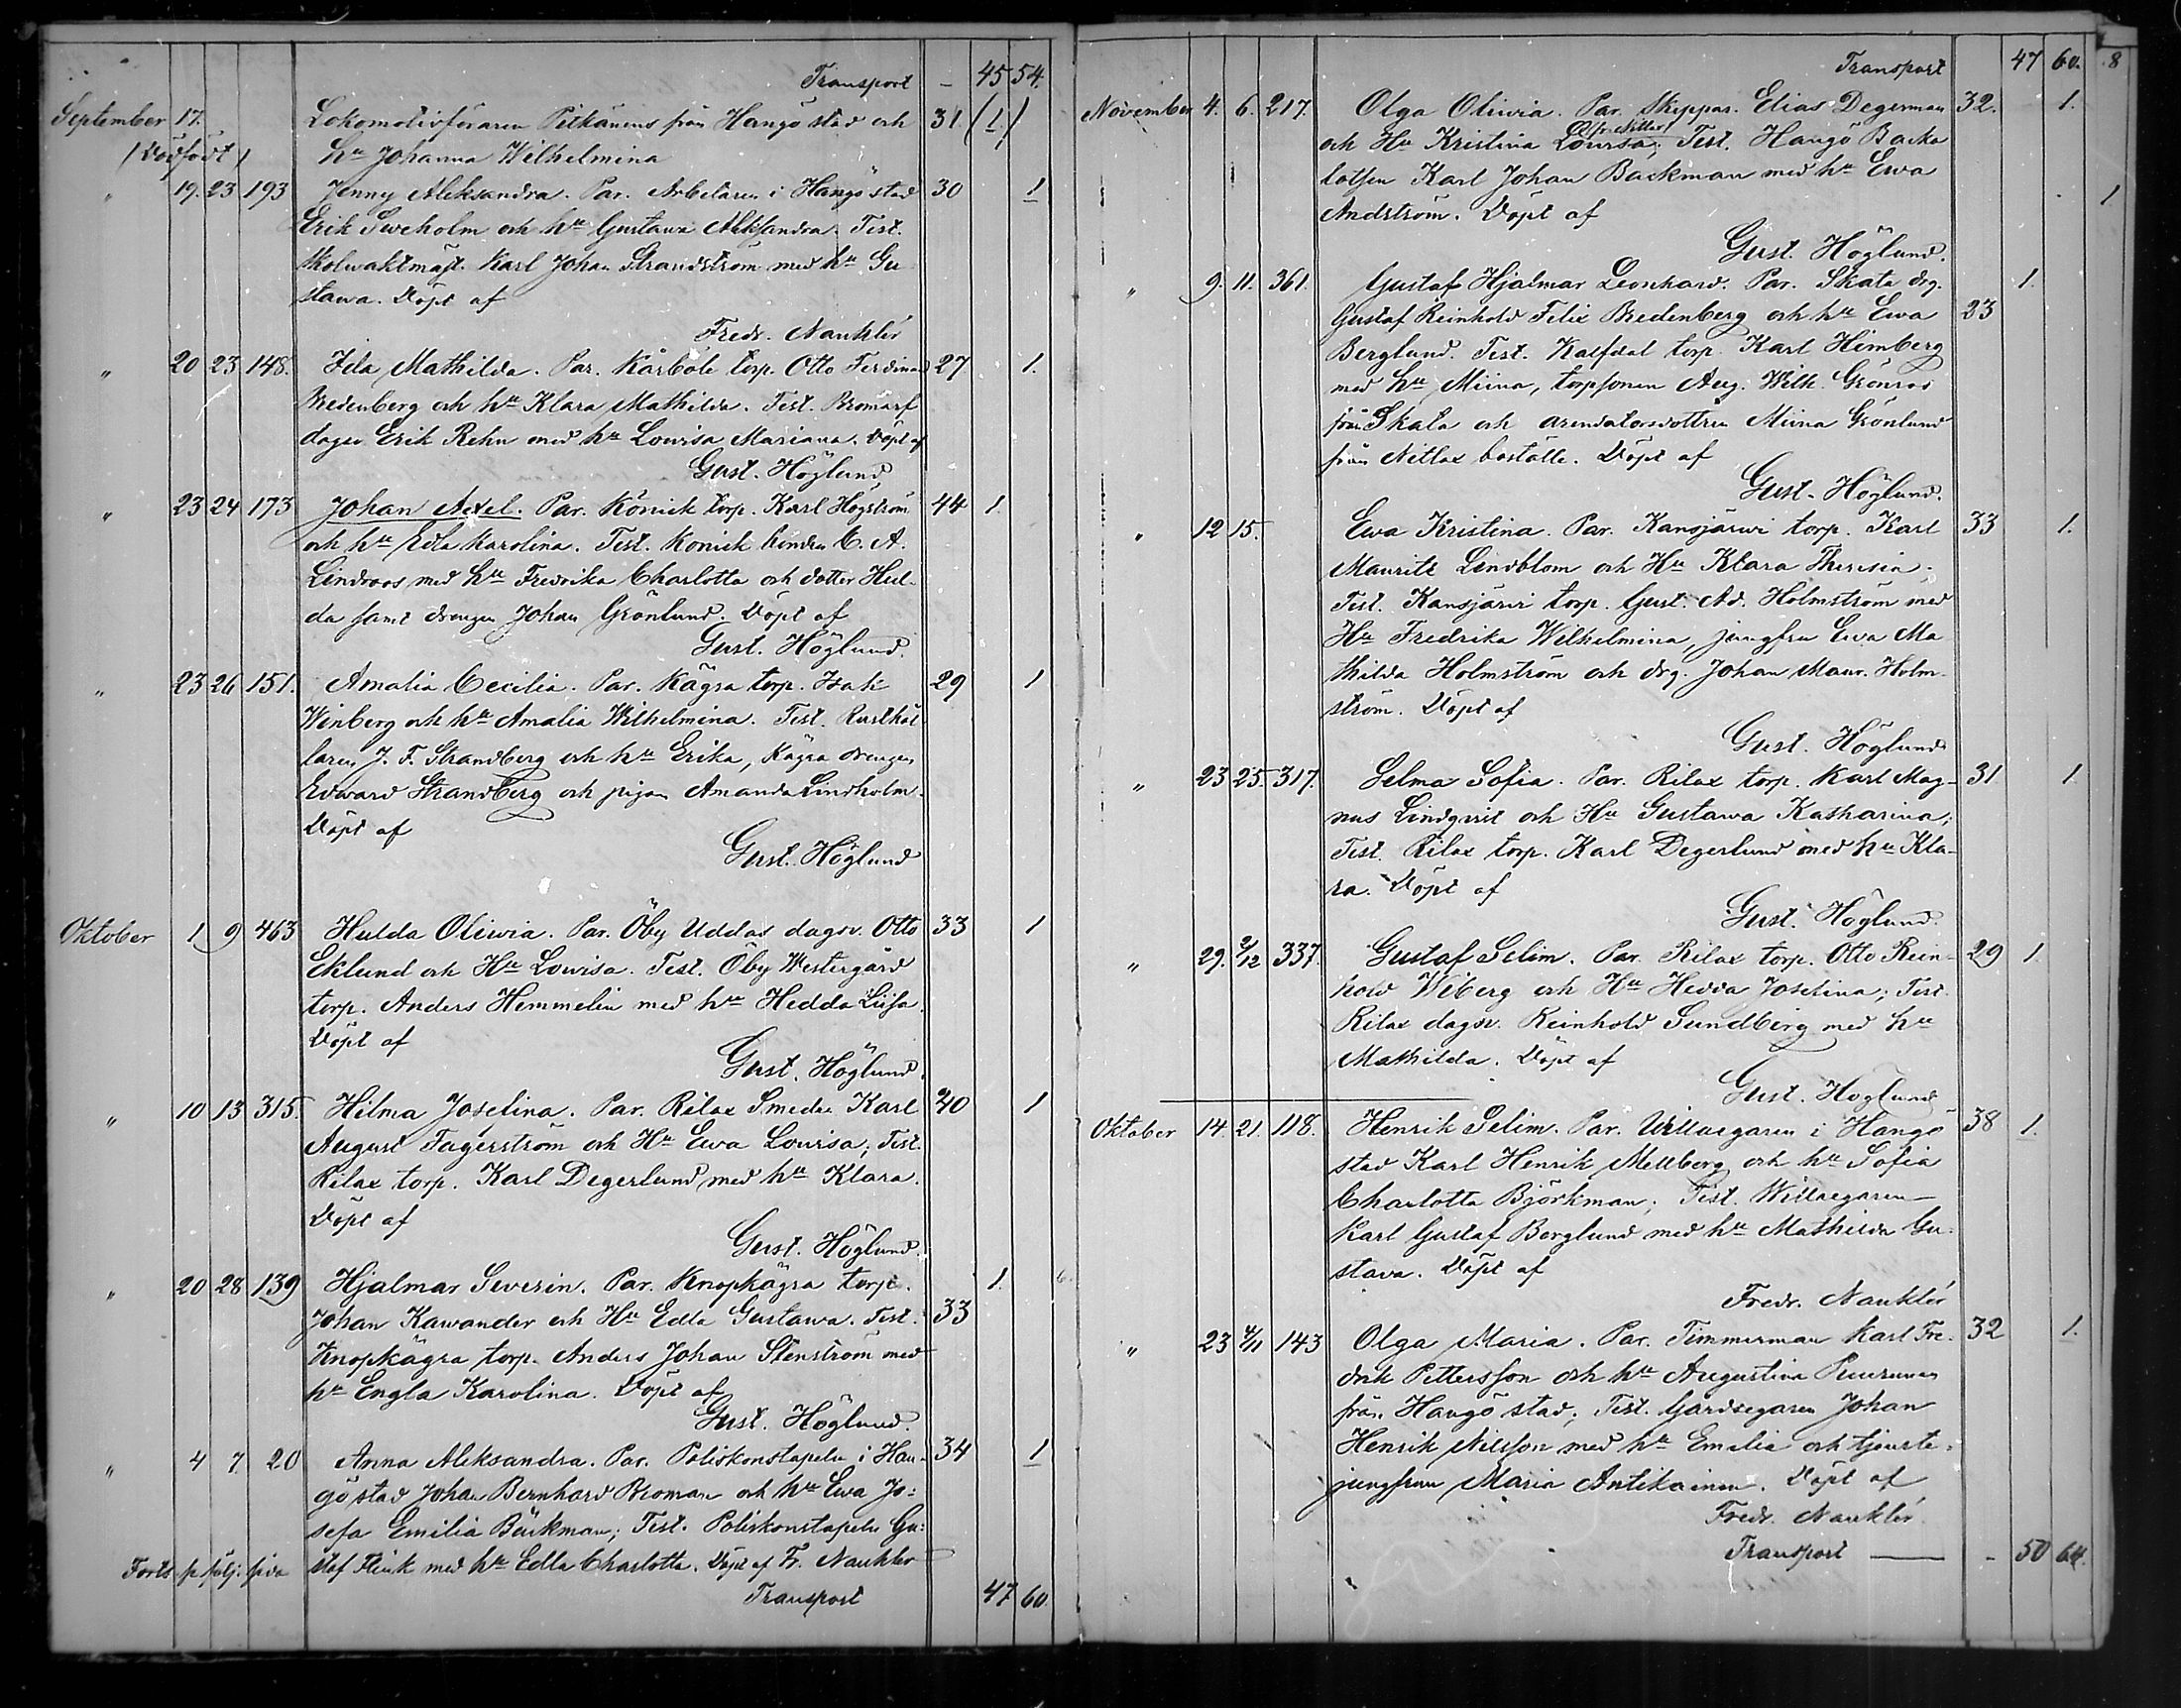 Transport - 45 54.
September 17. Lokomotivföraren Pitkänens från Hangö stad och 31. (1.)
(Dödfödt) Hu Johanna Wilhelmina
" 19. 23 193 Jenny Aleksandra. Par. Arbetaren i Hangö stad 30 1
Erik Sweholm och hu Gustawa Aleksandra. Test.
Skolwaktmäst. Karl Johan Strandström med hu Gu
stawa. Döpt af
Fredr. Nauklér
" 20 23 148. Ida Mathilda. Par. Kårböle torp. Otto Ferdinand 27 1.
Bredenberg och hu Klara Mathilda. Test. Bromarf
dagsv. Erik Rehn med hu Lowisa Mariana. Döpt af
Gust. Höglund
" 23 24 173 Johan Axel. Par. Könick torp. Karl Högström 44 1.
och hu Edla Karolina. Test. Konick bonden C. A.
Lindroos med hu Fredrika Charlotta och dotter Hul-
da samt drengen Johan Grönlund. Döpt af
Gust. Höglund.
" 23 26 151. Amalia Cecilia. Par. Kägra torp. Isak 29 1
Winberg och hu Amalia Wilhelmina. Test. Rusthål
laren J. F. Strandberg och hu Erika, Kägra drengen
Edward Strandberg och pigan Amanda Lindholm.
Döpt af
Gust. Höglund
Oktober 1 9 463 Hulda Oliwia. Par. Öby Uddas dagsv. Otto 33 1
Eklund och Hu Lowisa. Test. Öby Westergård
torp. Anders Hemmelin med hu Hedda Lisa.
Döpt af
Gust. Höglund.
" 10 13 315. Hilma Josefina. Par. Rilax Smeden Karl 40 1
August Fagerström och Hu Ewa Lovisa; Test.
Rilax torp. Karl Degerlund med hu Klara.
Döpt af
Gust. Höglund.
" 20 28 139 Hjalmar Severin. Par. Knopkägra torp. 1.
Johan Kawander och Hu Edla Gustawa. Test. 33
Knopkägra torp. Anders Johan Stenström med
hu Engla Karolina. Döpt af
Gust. Höglund.
" 4 7 20 Anna Aleksandra. Par. Poliskonstapeln i Han- 34 1
gö stad Johan Bernhard Broman och hu Ewa Jo:
sefa Emilia Bäckman; Test. Poliskonstapeln Gu:
staf Flink med hu Edla Charlotta. Döpt af Fr. Nauklér
Forts på följ. sida
Transport 47 60.
Transport 47 60. 8
November 4. 6. 217. Olga Oliwia. Par. Skeppar. Elias Degerman 32. 1.
och Hu Kristina Lovisa; Test. Hangö Backa
lotsen Karl Johan Backman med hu Ewa
Andström. Döpt af 1
Gust. Höglund.
" 9. 11. 361. Gustaf Hjalmar Leonhard. Par. Skata drg. 1.
Gustaf Reinhold Felix Bredenberg och hu Ewa 23
Berglund. Test. Kalfdal torp. Karl Himberg
med hu Miina, torpsonen Aug. Wilh. Grönros
från Skata och arendatorsdottren Miina Grönlund
från Nitlax boställe. Döpt af
Gust. Höglund.
" 12 15. Ewa Kristina. Par. Kansjärwi torp. Karl 33 1.
Mauritz Lindblom och Hu Klara Theresia.
Test. Kansjärwi torp. Gust. Ad. Holmström med
Hu Fredrika Wilhelmina, jungfru Ewa Ma
thilda Holmström och drg. Johan Maur. Holm-
ström. Döpt af
Gust. Höglund
" 23 25. 317. Selma Sofia. Par. Rilax torp. Karl Mag- 31 1.
nus Lindqvist och Hu Gustawa Katharina;
Test. Rilax torp. Karl Degerlund med hu Kla-
ra. Döpt af
Gust. Höglund.
" 29. 2/12 337. Gustaf Selim. Par. Rilax torp. Otto Rein- 29 1.
hold Wiberg och Hu Hedda Josefina; Test.
Rilax dagsv. Reinhold Sundberg med hu
Mathilda. Döpt af
Gust. Höglund
Oktober 14. 21. 118. Henrik Selim. Par. Willaegaren i Hangö 38 1.
stad Karl Henrik Mellberg och hu Sofia
Charlotta Björkman; Test. Willaegaren
Karl Gustaf Berglund med hu Mathilda Gu-
stava. Döpt af
Fredr. Nauklér
" 23 4/11 143 Olga Maria. Par. Timmerman Karl Fre- 32 1.
drik Pettersson och hu Augustina
från Hangö stad; Test. Gårdsegaren Johan
Henrik Nilsson med hu Emelia och tjenste-
jungfrun Maria Antikainen. Döpt af
Fredr. Nauklér.
Transport - 50 64.